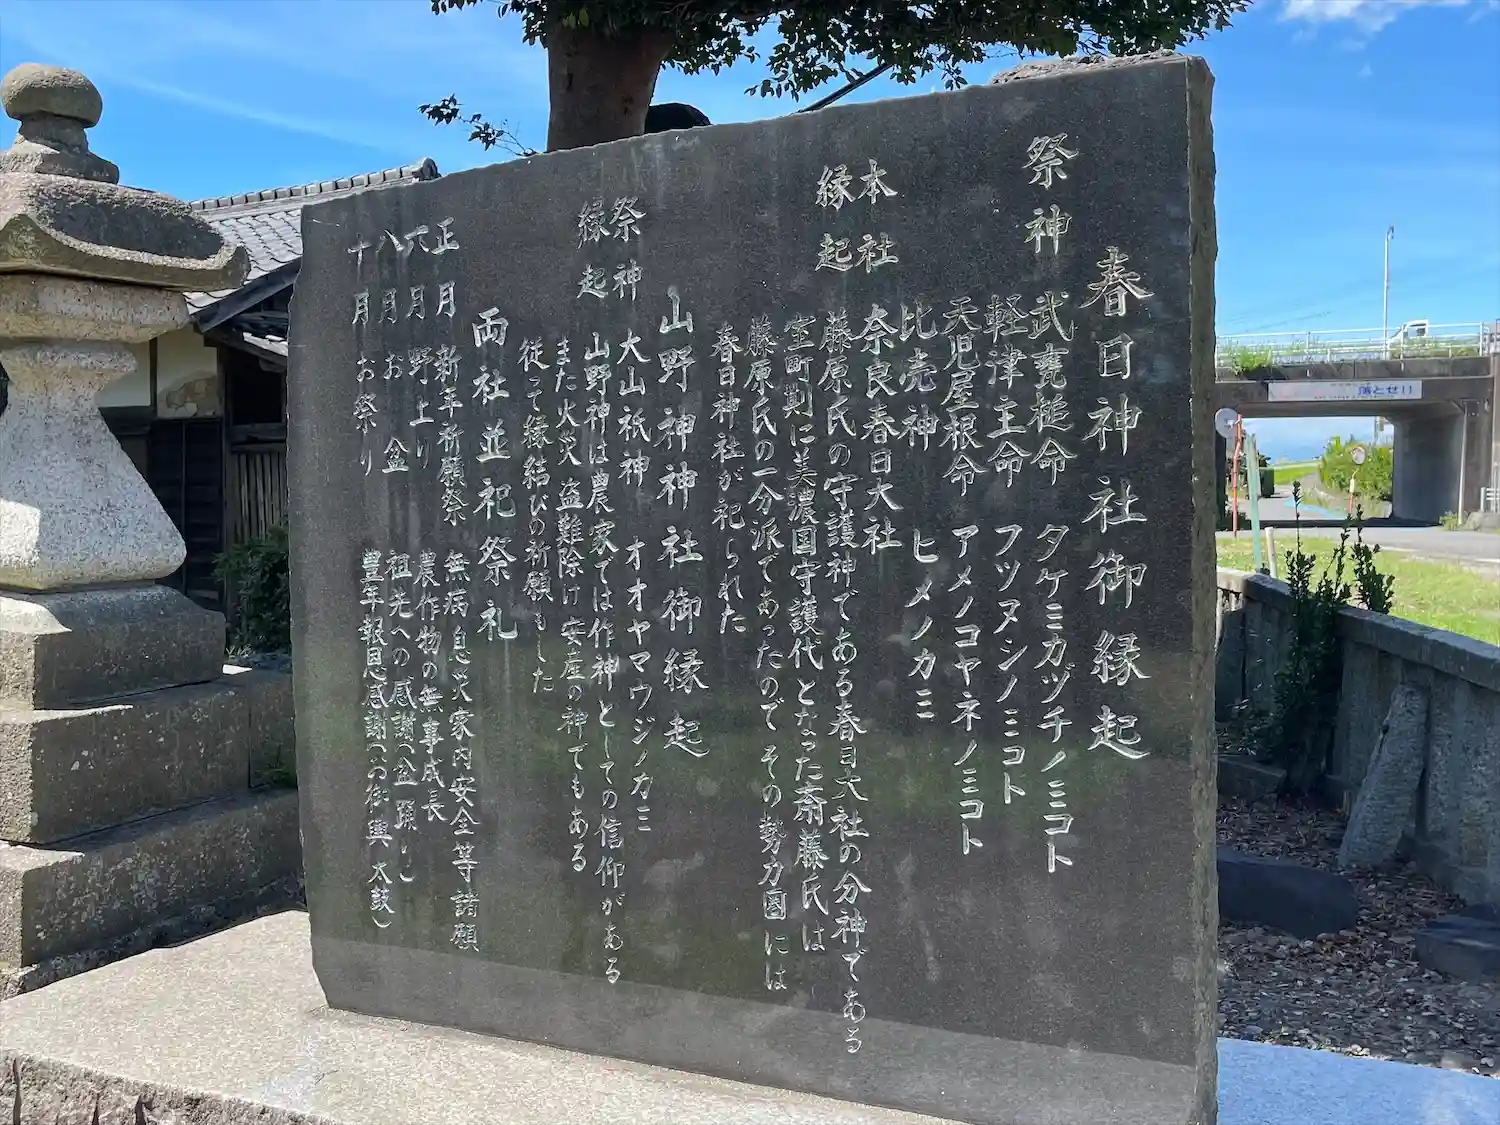 春日神社御縁起
祭神 武甕槌命 タケミカヅチノミコト
軽津主命 フツヌシノミコト
天児屋根命 アメノコヤネノミコト
比売神 ヒメノカミ
本社 奈良春日大社
縁起 藤原氏の守護神である春日大社の分神である
室町期に美濃国守護代となった斎藤氏は
藤原氏の一分派てあったのでその勢力圏には
春日神社が祀られた
山野神神社御縁起
祭神 大山祇神 オオヤマツジノカミ
縁起 山野神は農家では作神としての信仰がある
また火災盗難除け安産の神でもある
従って縁結びの祈願もした
両社並祀祭礼
正月 新年祈願祭 無病息災家内安全等諸願
六月 野上り 農作物の無事成長
八月 お盆 祖先への感謝(盆踊り)
十月 お祭り 豊年報恩感謝(御輿太鼓)
落とせ!!